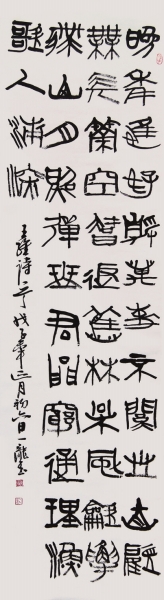 晚年唯好靜萬事不關心自顧
無長策空知返舊林松風吹解
帶山月照彈琴君問窮通理漁
歌入浦深
王維詩一首戊子年三月初六日一龍書